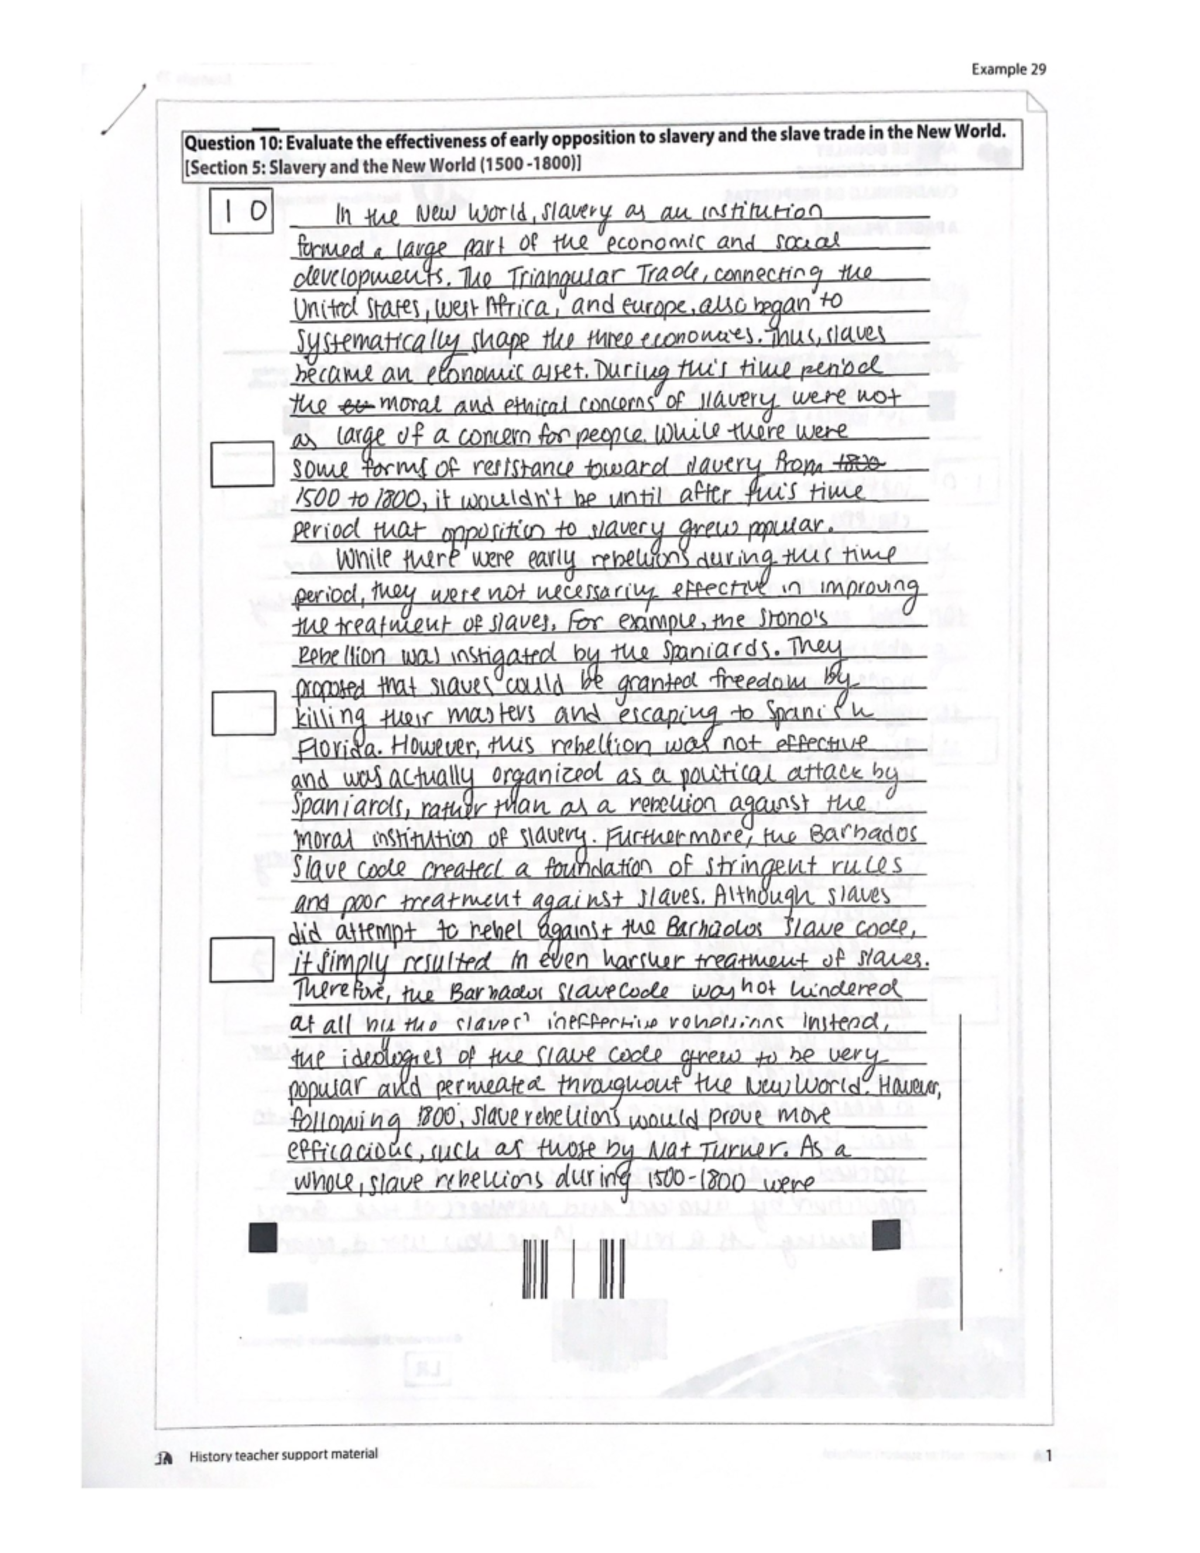 Example 29
Question 10: Evaluate the effectiveness of early opposition to slavery and the slave trade in the New World.
[Section 5: Slavery and the New World (1500 -1800)]
1 0
In the New World, slavery as an institution
formed a large part of the economic and social
developments. The Triangular Trade, connecting the
United States, West Africa, and Europe, also began to
systematically shape the three economies. Thus, slaves
became an economic asset. During this time period
the moral and ethical concerns of slavery were not
as large of a concern for people. While there were
some forms of resistance toward slavery from 1800
1500 to 1800, it wouldn't be until after this time
period that opposition to slavery grew popular.
While there were early rebellions during this time
period, they were not necessarily effective in improving
the treatment of slaves. For example, the Stono's
Rebellion was instigated by the Spaniards. They
proposed that slaves could be granted freedom by
killing their masters and escaping to Spanish
Florida. However, this rebellion was not effective
and was actually organized as a political attack by
Spaniards, rather than as a rebellion against the
moral institution of slavery. Furthermore, the Barbados
Slave code created a foundation of stringent rules
and poor treatment against slaves. Although slaves
did attempt to rebel against the Barbados slave code,
it simply resulted in even harsher treatment of slaves.
Therefore, the Barbados Slave Code was not hindered
at all by the slaves' ineffective rebellions Instead,
the ideologies of the slave code grew to be very
popular and permeated throughout the New World. However,
following 1800, slave rebellions would prove more
efficacious, such as those by Nat Turner. As a
whole, slave rebellions during 1500-1800 were
History teacher support material
1